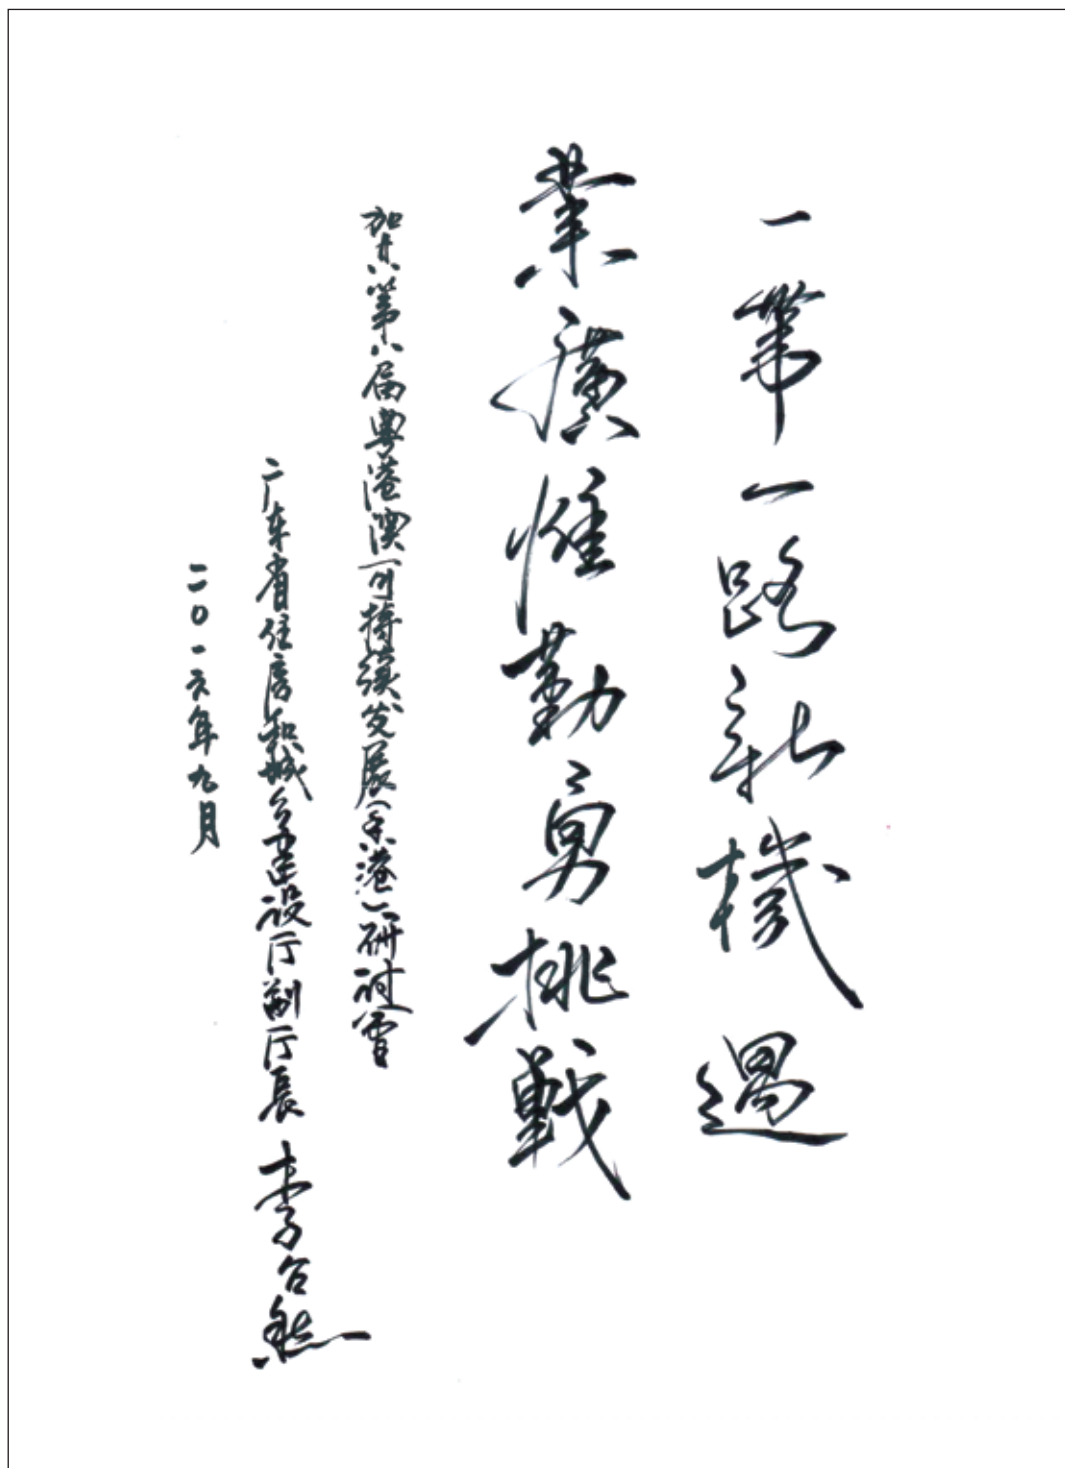 一帶一路新機遇
業廣惟勤勇挑戰
賀第八届粤港澳可持续发展(香港)研讨會
广东省住房和城乡建设厅副厅长 李台然
二〇一六年九月